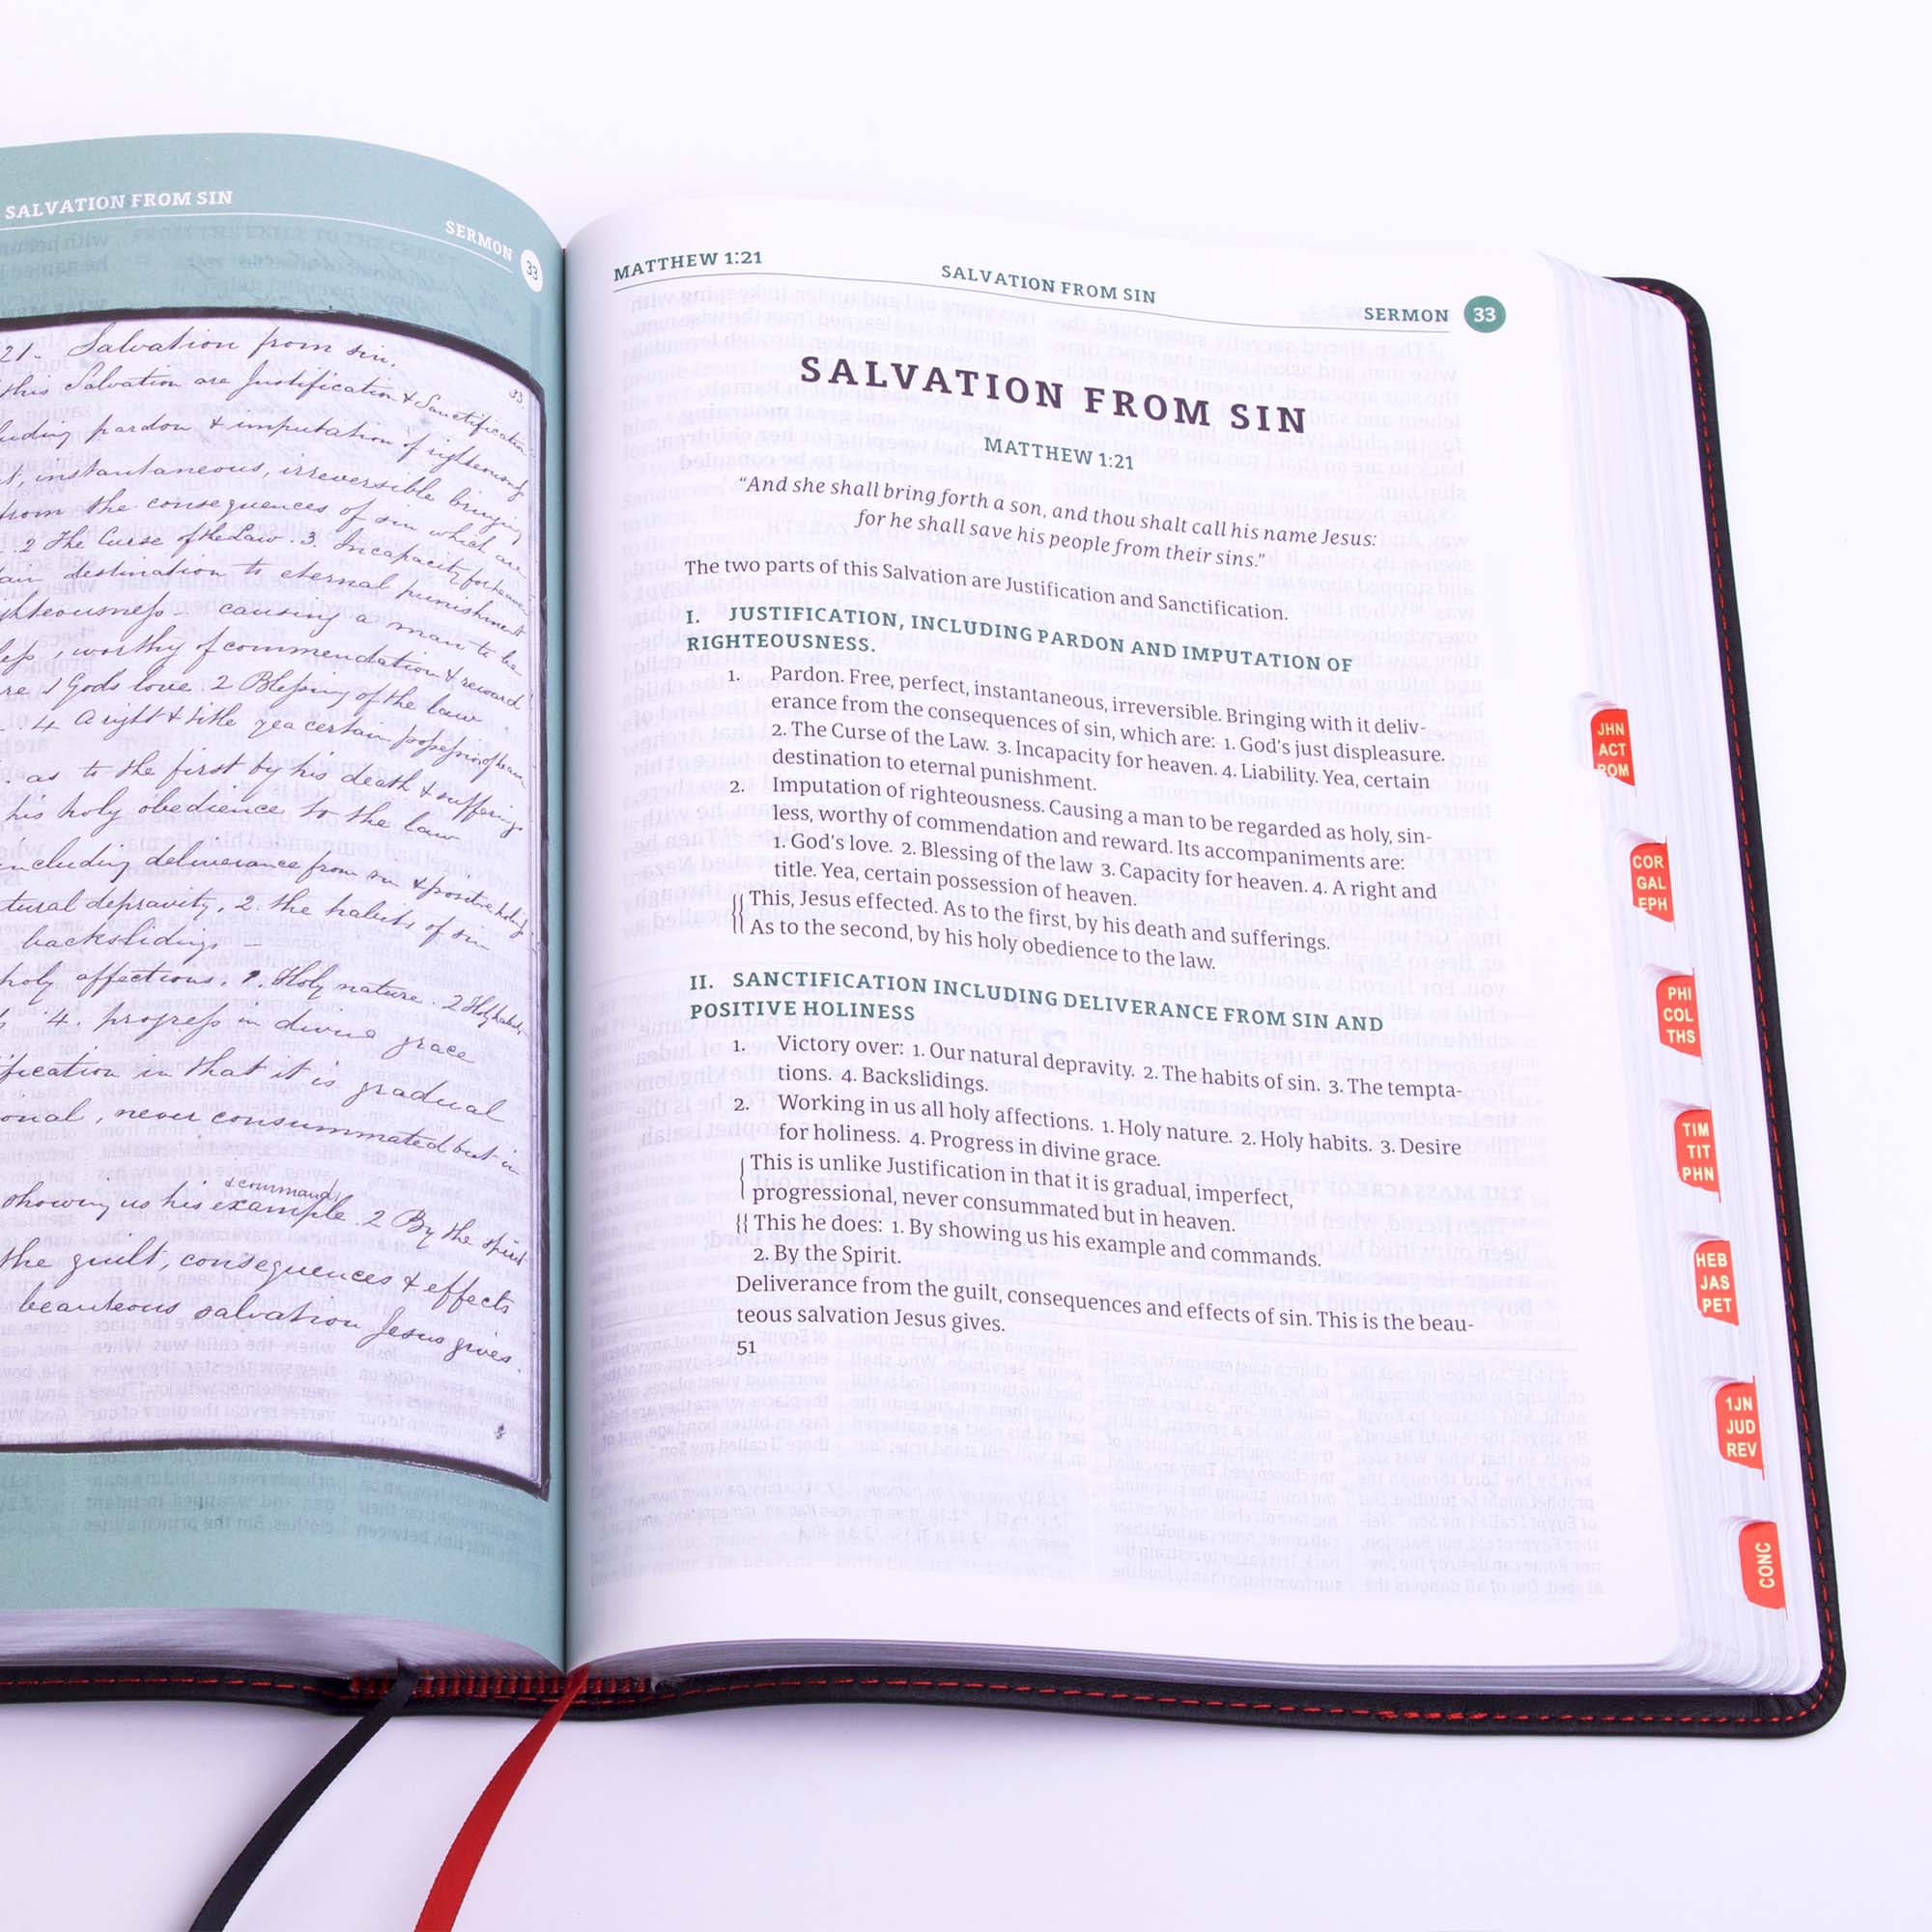 SALVATION FROM SIN
SERMON 33
21- Salvation from sin. 33
this Salvation are Justification & Sanctification
uding pardon & imputation of righteousness
t, instantaneous, irreversible bringing
from the consequences of sin which are
. 2 The Curse of the Law. 3. Incapacity for heaven
destination to eternal punishment
ghteousness - causing a man to be
less, worthy of commendation & reward
re 1 Gods love. 2 Blessing of the law
. 4 A right & title yea certain possession of heaven
as to the first by his death & sufferings
his holy obedience to the law
ncluding deliverance from sin & positive holi
tural depravity, 2. the habits of sin
backslidings
holy affections. Holy nature. 2 Holy habits
4. progress in divine grace
fication in that it is gradual
onal, never consummated but in
& commands
showing us his example. 2 By the spirit
the guilt, consequences & effects
beauteous salvation Jesus gives.
MATTHEW 1:21 SALVATION FROM SIN SERMON 33
SALVATION FROM SIN
MATTHEW 1:21
“And she shall bring forth a son, and thou shalt call his name Jesus:
for he shall save his people from their sins.”
The two parts of this Salvation are Justification and Sanctification.
I. JUSTIFICATION, INCLUDING PARDON AND IMPUTATION OF
RIGHTEOUSNESS.
1. Pardon. Free, perfect, instantaneous, irreversible. Bringing with it deliv-
erance from the consequences of sin, which are: 1. God's just displeasure.
2. The Curse of the Law. 3. Incapacity for heaven. 4. Liability. Yea, certain
destination to eternal punishment.
2. Imputation of righteousness. Causing a man to be regarded as holy, sin-
less, worthy of commendation and reward. Its accompaniments are:
1. God's love. 2. Blessing of the law 3. Capacity for heaven. 4. A right and
title. Yea, certain possession of heaven.
{{ This, Jesus effected. As to the first, by his death and sufferings.
As to the second, by his holy obedience to the law.
II. SANCTIFICATION INCLUDING DELIVERANCE FROM SIN AND
POSITIVE HOLINESS
1. Victory over: 1. Our natural depravity. 2. The habits of sin. 3. The tempta-
tions. 4. Backslidings.
2. Working in us all holy affections. 1. Holy nature. 2. Holy habits. 3. Desire
for holiness. 4. Progress in divine grace.
{ This is unlike Justification in that it is gradual, imperfect,
progressional, never consummated but in heaven.
{{ This he does: 1. By showing us his example and commands.
2. By the Spirit.
Deliverance from the guilt, consequences and effects of sin. This is the beau-
teous salvation Jesus gives.
51
JHN
ACT
ROM
COR
GAL
EPH
PHI
COL
THS
TIM
TIT
PHN
HEB
JAS
PET
1JN
JUD
REV
CONC